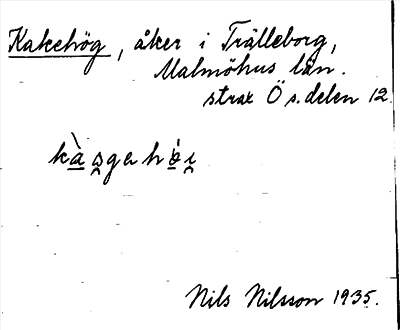 Kakehög, åker i Trälleborg,
Malmöhus län.
strax Ö s. delen 12.
Nils Nilsson 1935.